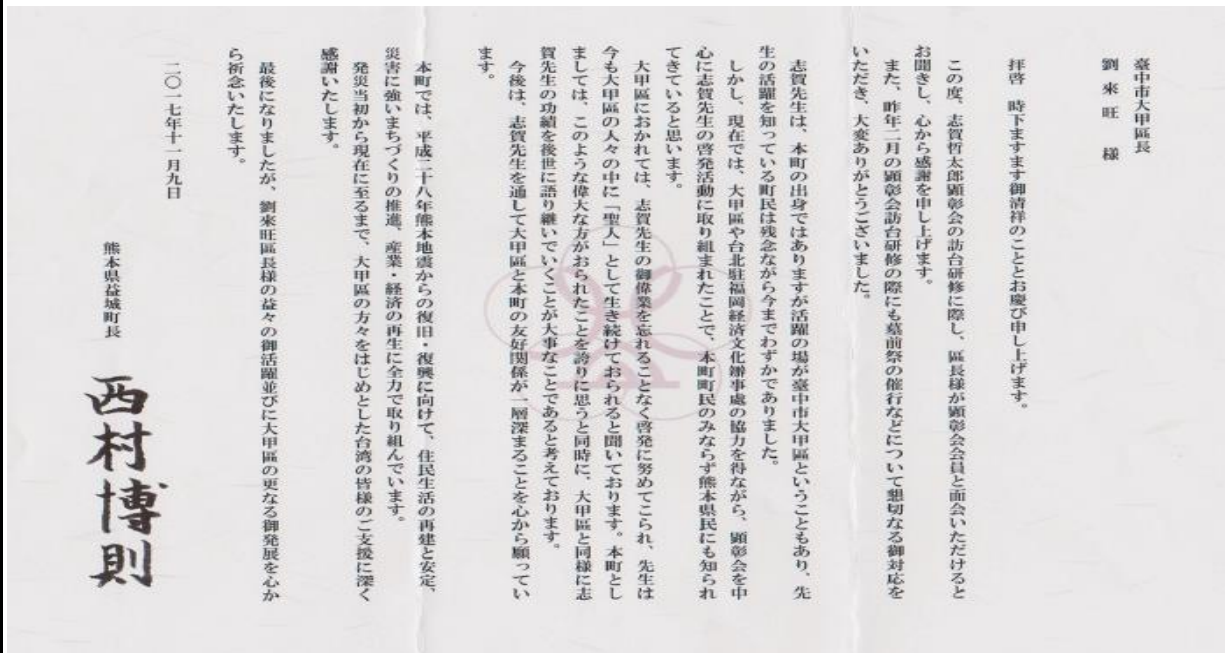 臺中市大甲區長
劉來旺　様
拝啓　時下ますます御清祥のこととお慶び申し上げます。
この度、志賀哲太郎顕彰会の訪台研修に際し、區長様が顕彰会会員と面会いただけると
お聞きし、心から感謝を申し上げます。
また、昨年二月の顕彰会訪台研修の際にも墓前祭の催行などについて懇切なる御対応を
いただき、大変ありがとうございました。
志賀先生は、本町の出身ではありますが活躍の場が臺中市大甲區ということもあり、先
生の活躍を知っている町民は残念ながら今までわずかでありました。
しかし、現在では、大甲區や台北駐福岡経済文化辦事處の協力を得ながら、顕彰会を中
心に志賀先生の啓発活動に取り組まれたことで、本町町民のみならず熊本県民にも知られ
てきていると思います。
大甲區におかれては、志賀先生の御偉業を忘れることなく啓発に努めてこられ、先生は
今も大甲區の人々の中に「聖人」として生き続けておられると聞いております。本町とし
ましては、このような偉大な方がおられたことを誇りに思うと同時に、大甲區と同様に志
賀先生の功績を後世に語り継いでいくことが大事なことであると考えております。
今後は、志賀先生を通して大甲區と本町の友好関係が一層深まることを心から願ってい
ます。
本町では、平成二十八年熊本地震からの復旧・復興に向けて、住民生活の再建と安定、
災害に強いまちづくりの推進、産業・経済の再生に全力で取り組んでいます。
発災当初から現在に至るまで、大甲區の方々をはじめとした台湾の皆様のご支援に深く
感謝いたします。
最後になりましたが、劉來旺區長様の益々の御活躍並びに大甲區の更なる御発展を心か
ら祈念いたします。
二〇一七年十一月九日
熊本県益城町長
西村博則